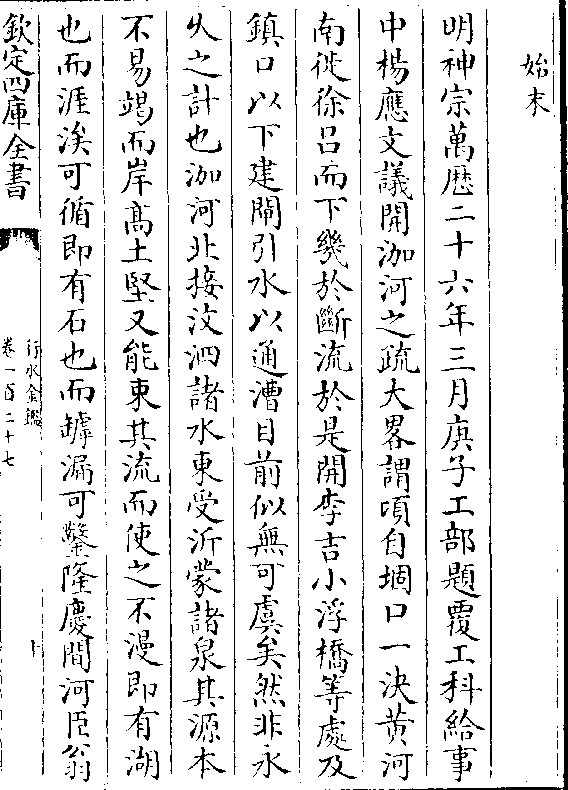 始末
明神宗萬厯二十六年三月庚子工部題覆工科給事
中楊應文議開泇河之疏大畧謂頃自堌口一決黄河
南徙徐吕而下幾於斷流於是開李吉小浮橋等處及
鎮口以下建閘引水以通漕目前似無可虞矣然非永
久之計也泇河北接汶泗諸水東受沂蒙諸泉其源本
不易竭而岸髙土堅又能束其流而使之不漫即有湖
也而涯涘可循即有石也而罅漏可鑿隆慶間河臣翁
欽定四庫全書
行水金鑑
卷一百二十七
十